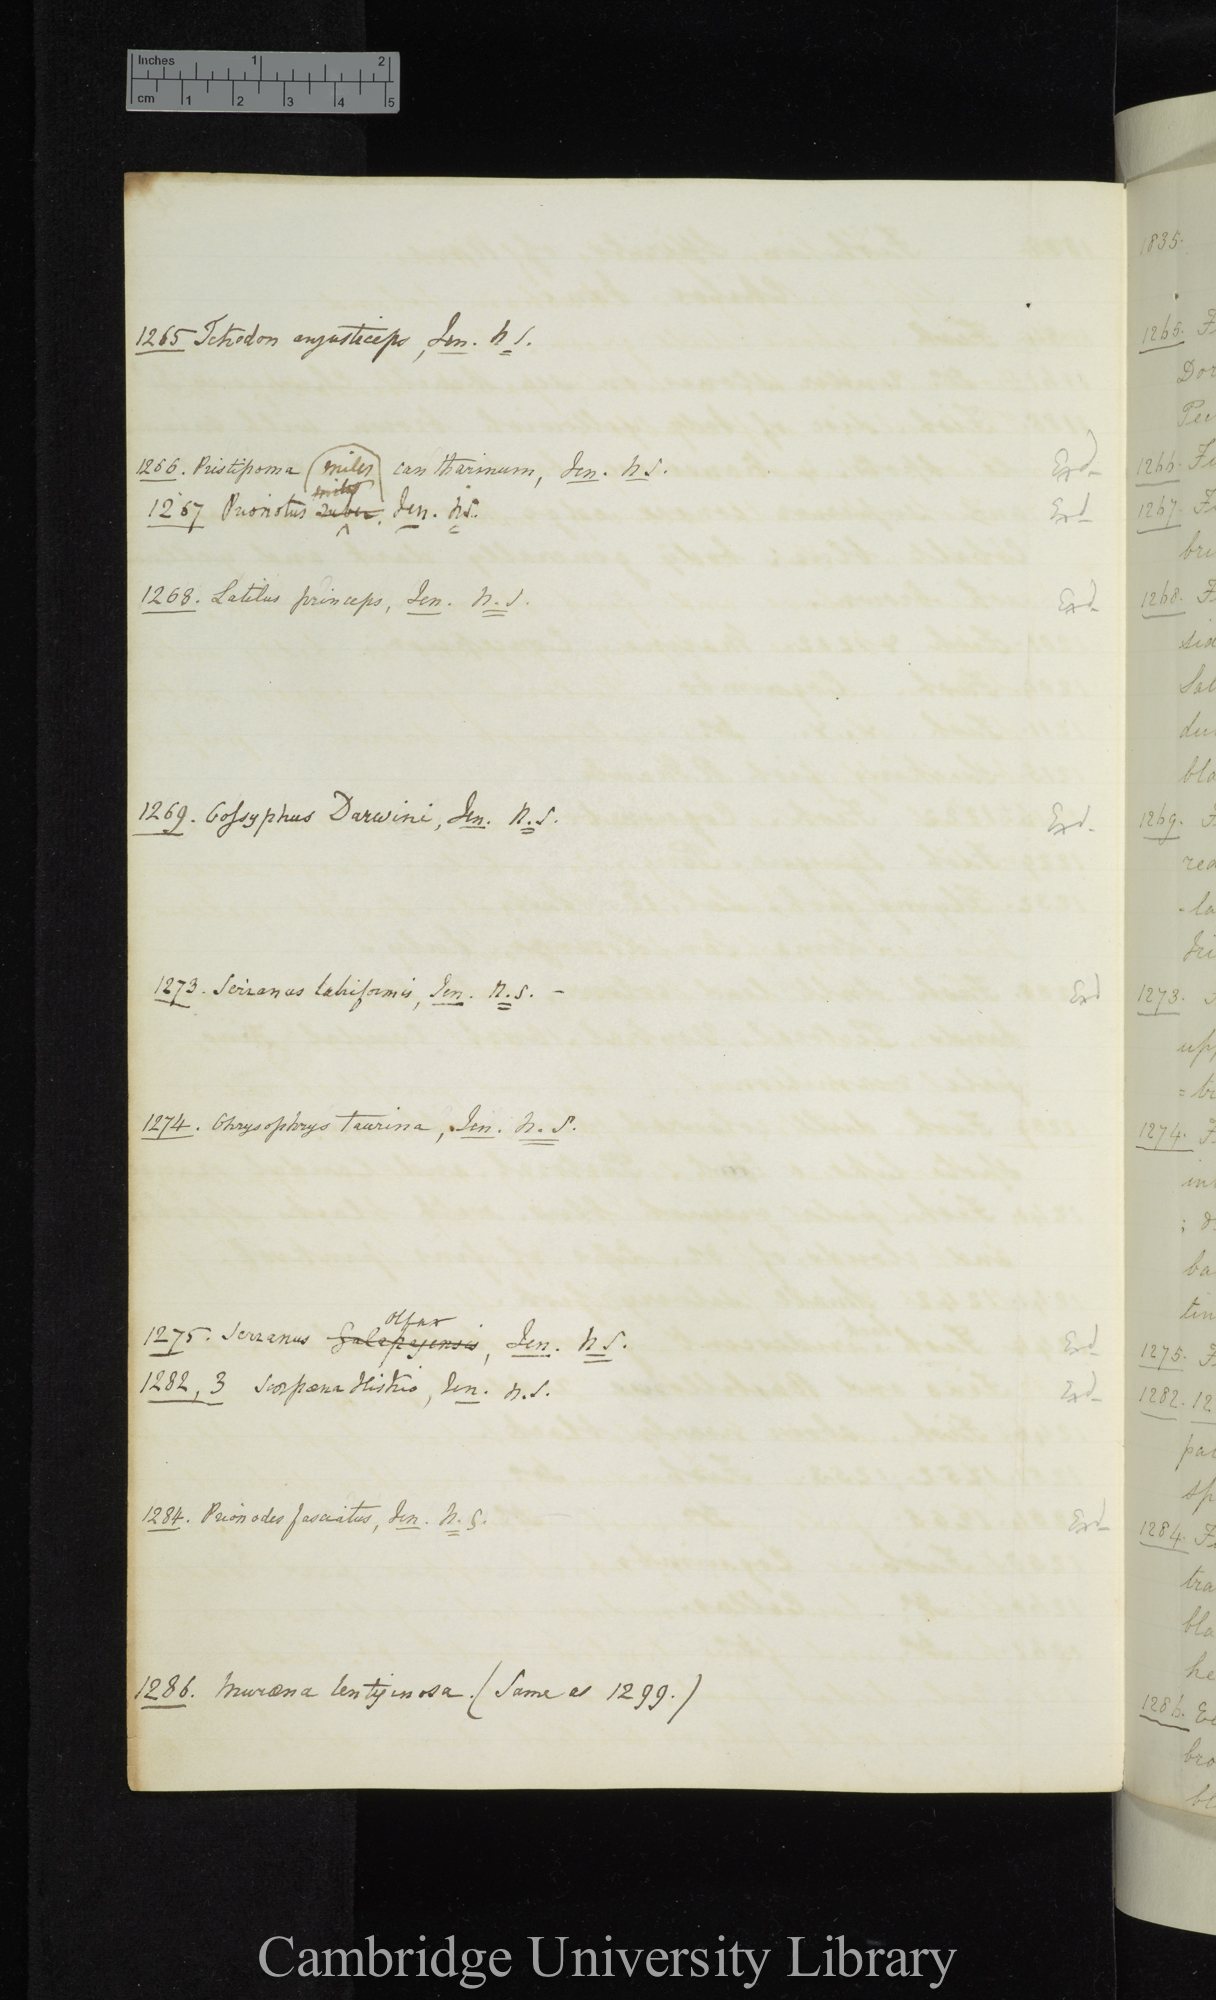 Inches 1 2
cm 1 2 3 4 5
1265 Tetrodon angusticeps, Jen. N. S.
1266. Pristipoma (miles) cantharinum, Jen. N. S.
miles
1267 Prionotus Jen. N. S.
1268. Latilus princeps, Jen. N. S.
1269. Cossyphus Darwini, Jen. N. S.
1273. Serranus labriformis, Jen. N. S. –
1274. Chrysophrys taurina, Jen. N. S.
olfax
1275. Serranus Galapagensis, Jen. N. S.
1282, 3 Scorpæna Histrio, Jen. N. S.
1284. Prionodes fasciatus, Jen. N. S.
1286. Muræna lentiginosa. (Same as 1299.)
1835.
1265.
Dor
Pec
1266.
1267.
bri
1268.
sid
bla
1269.
red
1273.
upp
1274.
tin
1275.
1282. 12
1284.
tra
bla
he
1286.
bro
bl
Cambridge University Library